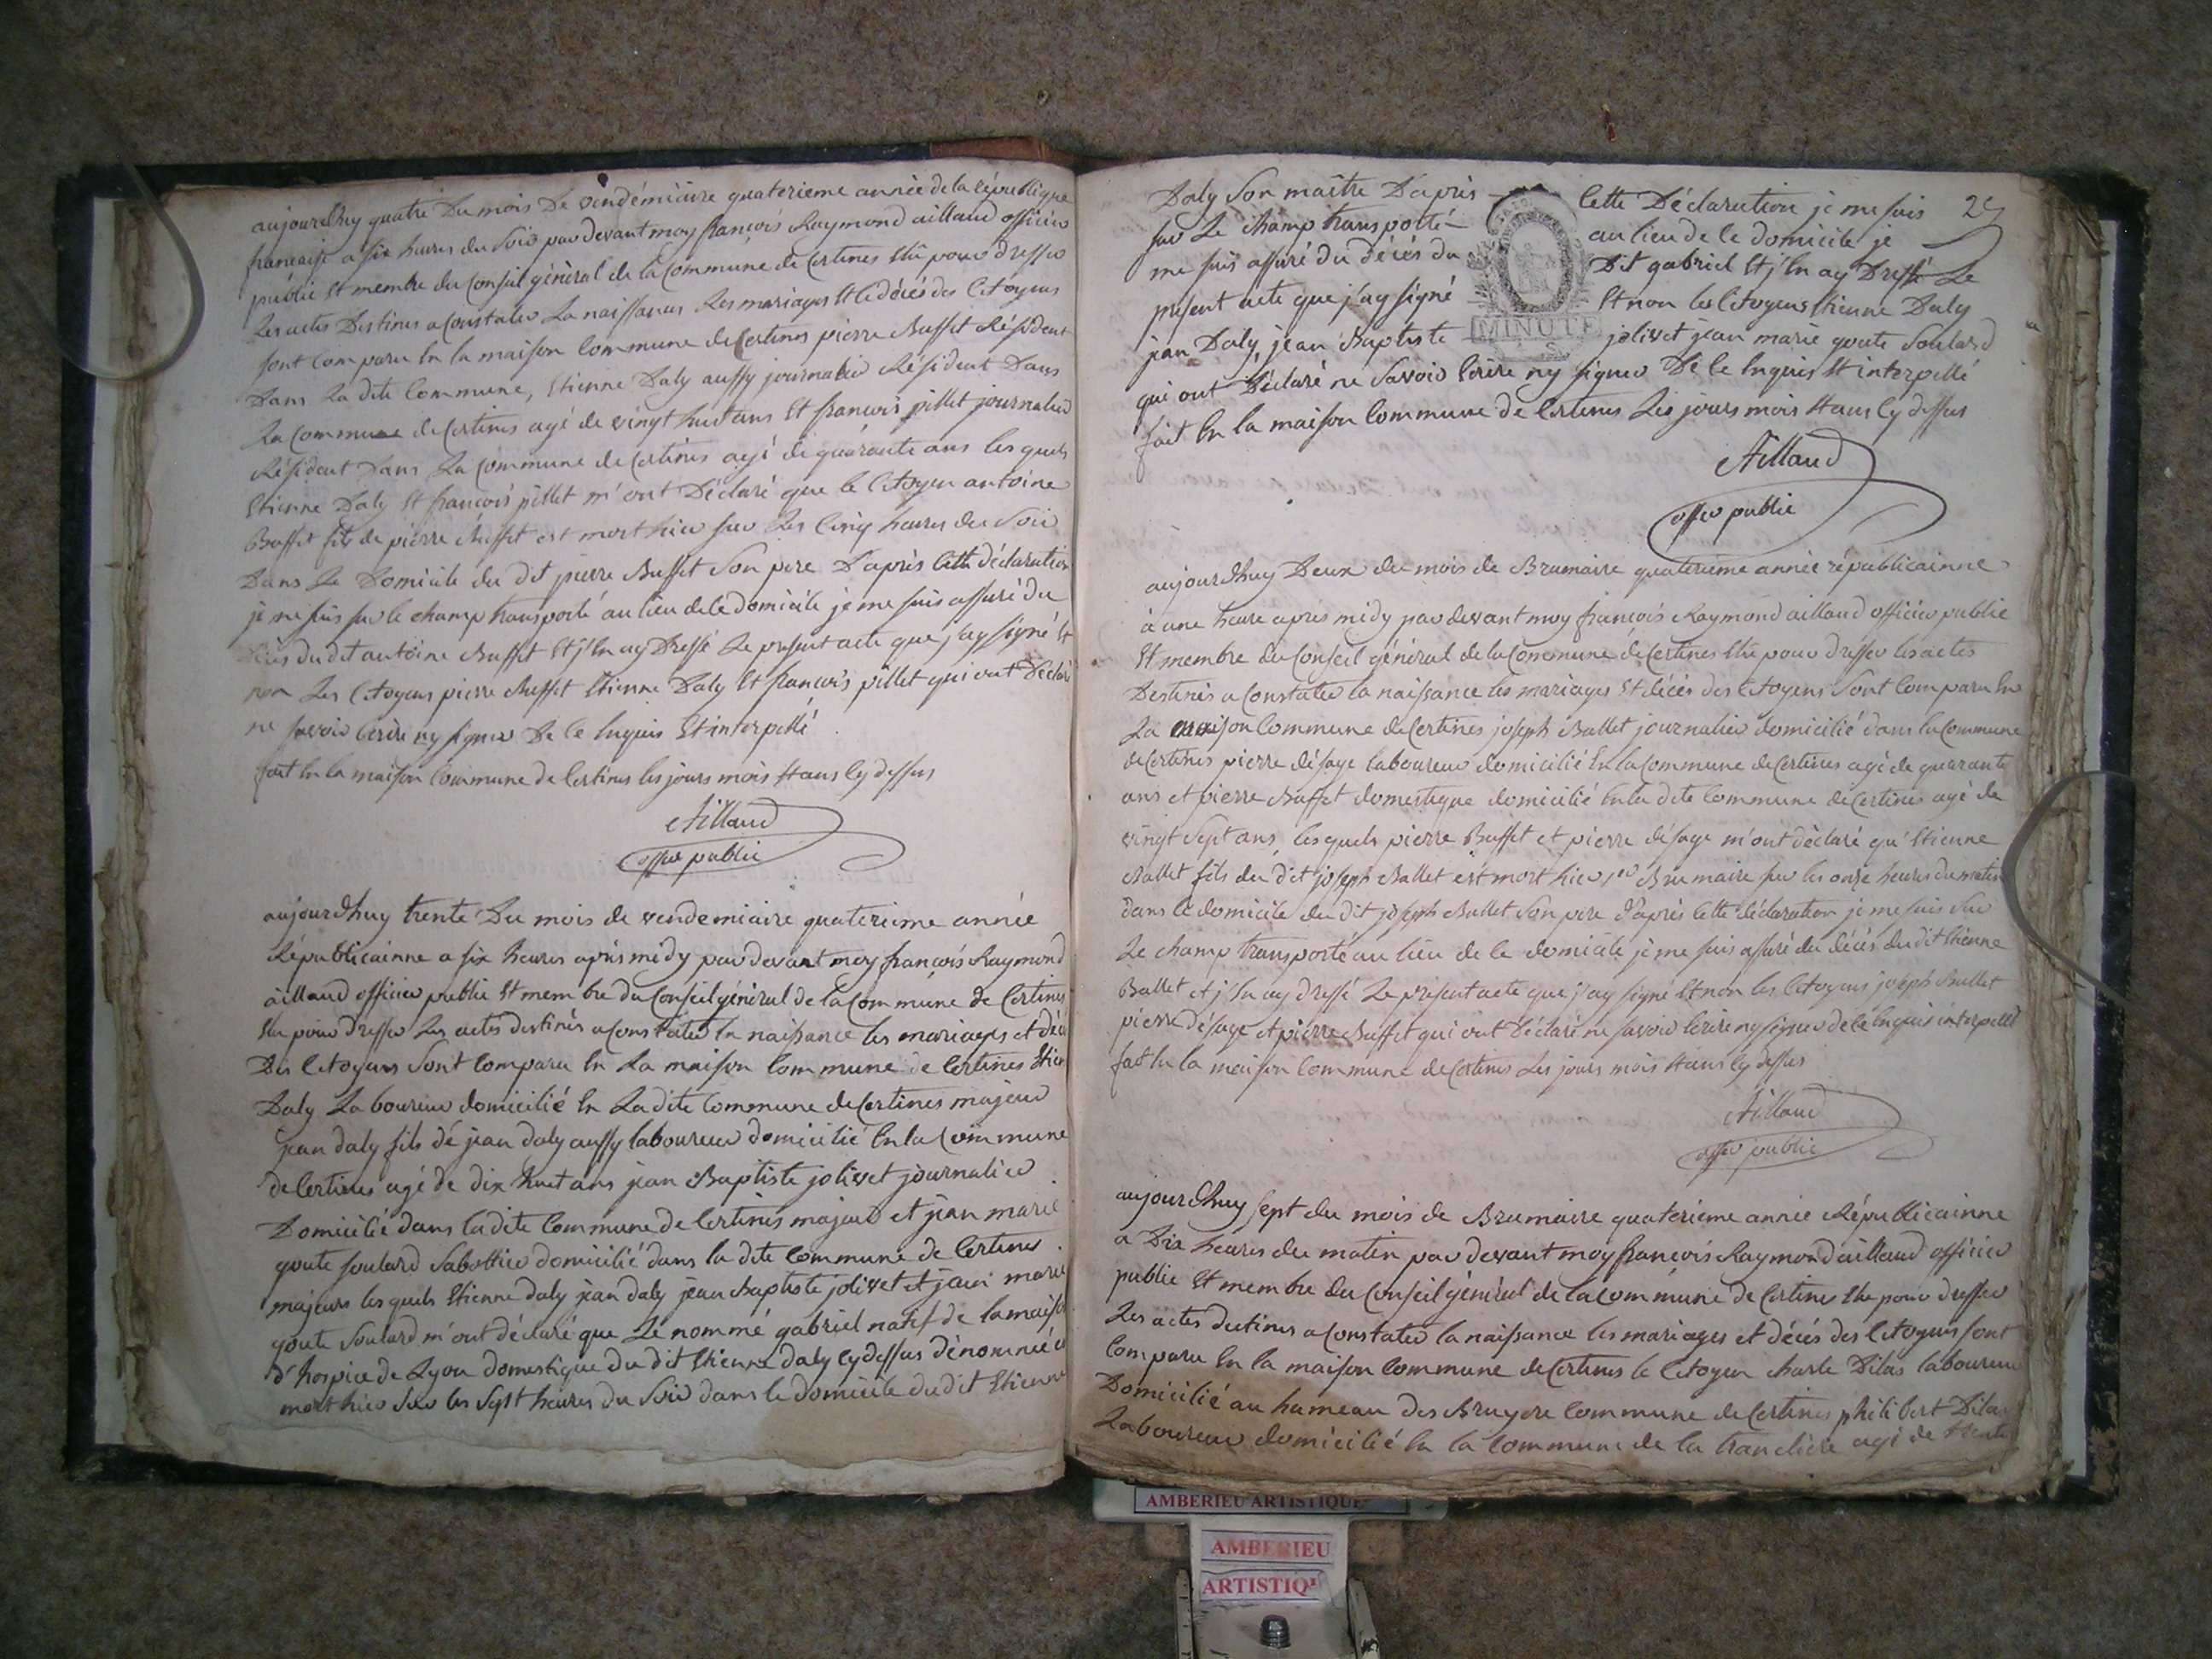 aujourdhuy quatre Du mois De vendémiaire quaterieme année de la république
francaise a six heures du Soir par devant moy françois Raymond aillaud officier
public Et membre du Conseil général de la Commune de Certines Elu pour dresser
Les actes Destinés a Constater La naissance Les mariages Et le décés des Citoyens
sont Comparu En la maison Commune de Certines pierre Buffet Résident
Dans La dite Commune, Etienne Daly aussy journalier Résident Dans
La Commune de Certines agé de vingt huit ans Et francois pillet journalier
Résident Dans La Commune de Certines agé de quarante ans les quels
Etienne Daly Et francois pillet m'ont Déclaré que le Citoyen antoine
Buffet fils de pierre Buffet est mort hier sur Les Cinq heures du Soir
Dans Le Domicile du dit pierre Buffet Son pere D'après Cette déclaration
je me suis sur le champ transporté au lieu de le domicile je me suis assuré du
Décés du dit antoine Buffet Et j'En ay Dressé Le present acte que j'ay signé Et
non Les Citoyens pierre Buffet Etienne Daly Et francois pillet qui ont Déclaré
ne savoir Ecrire ny signer De Ce Enquis Et interpellé
fait En la maison Commune de Certines les jours mois Et ans Cy dessus
Aillaud
offier public
aujourdhuy trente Du mois de vendemiaire quaterieme année
Républicainne a six heures aprés midy par devant moy francois Raymond
aillaud officier public Et membre du Conseil général de la Commune de Certines
Elu pour dresser Les actes destinés a Constater La naissance les mariages et déc
Des Citoyens Sont Comparu En La maison Commune de Certines Etien
Daly Laboureur domicilié En Ladite Commune de Certines majeur
jean daly fils de jean daly aussy laboureur domicilié En la Commune
de Certines agé de dix huit ans jean Baptiste jolivet journalier
Domicilié dans la dite Commune de Certines majeur et jean marie
goute soulard Sabottier domicilié dans la dite Commune de Certines
majeurs les quels Etienne daly jean daly jean Baptiste jolivet et jean marie
goute Soulard m'ont déclaré que Le nommé gabriel natif de la maison
d'hospice de Lyon domestique du dit Etienne daly Cy dessus dénommé e
mort hier Sur les Sept heures du Soir dans le domicile du dit Etienne
Daly Son maître D'après Cette Déclaration je me suis 29
sur Le Champ transporté au lieu de le domicile je
me suis assuré du décés du Dit gabriel Et j'En ay Dressé Le
présent acte que j'ay signé Et non les Citoyens Etienne Daly
MINUTE
jean Daly, jean Baptiste jolivet jean marie goute Soulard
qui ont Déclaré ne Savoir Ecrire ny signer De Ce Enquis Et interpellé
fait En la maison Commune de Certines Les jours mois Et ans Cy dessus
Aillaud
offier public
aujourdhuy Deux du mois de Brumaire quaterieme année républicainne
à une heure aprés midy par devant moy françois Raymond aillaud officier public
Et membre du Conseil général de la Commune de Certines Elu pour dresser les actes
Destinés a Constater la naissance les mariages Et décés des Citoyens Sont Comparu En
La maison Commune de Certines joseph Ballet journalier domicilié dans la Commune
de Certines pierre désage laboureur domicilié En la Commune de Certines agé de quarante
ans et pierre Buffet domestique domicilié En la dite Commune de Certines agé de
vingt Sept ans, les quels pierre Buffet et pierre désage m'ont déclaré qu'Etienne
Ballet fils du dit joseph Ballet est mort hier 1er Brumaire sur les onze heures du matin
dans le domicile du dit joseph Ballet Son pere d'après Cette déclaration je me suis sur
Le champ transporté au lieu de le domicile je me suis assuré du décés du dit Etienne
Ballet et j'En ay dressé Le présent acte que j'ay signé Et non les Citoyens joseph Ballet
pierre désage et pierre Buffet qui ont Déclaré ne savoir Ecrire ny signer de Ce Enquis interpellé
fait En la maison Commune de Certines Les jours mois Et ans Cy dessus
Aillaud
offier public
aujourdhuy sept du mois de Brumaire quaterieme année Républicainne
a Dix heures du matin par devant moy francois Raymond aillaud officier
public Et membre du Conseil général de la Commune de Certines Elu pour dresser
Les actes destinés a Constater la naissance les mariages et décés des Citoyens sont
Comparu En la maison Commune de Certines le Citoyen charle Dilas laboureur
Domicilié au hameau des Bruyere Commune de Certines philibert Dilas
Laboureur domicilié En la Commune de la tranclière agé de trente
AMBERIEU ARTISTIQUE
AMBERIEU
ARTISTIQ